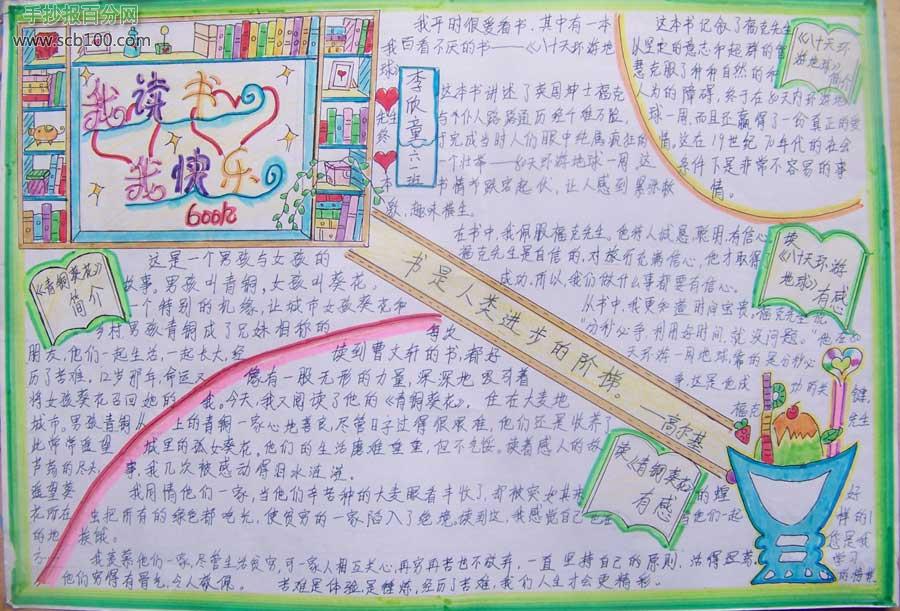 手抄报百分网
www.scb100.com
我读书
我快乐
李欣童六班
我平时很爱看书,其中有一本
我百看不厌的书——《八十天环游地
球》
这本书讲述了英国绅士福克
先生与仆人路路通历经千难万险,
终于完成当时人们眼中纯属疯狂的
一个壮举——80天环游地球一周,这
本书情节跌宕起伏,让人感到
趣味横生。
《八十天环游地球》简介
这本书记叙了福克先生
以坚定的意志和超群的智
慧克服了种种自然的和
人为的障碍,终于在80天内环游地
球一周,而且还赢得了一份真正的爱
情,这在19世纪70年代的社会
条件下是非常不容易的事
情。
读《八十天环游地球》有感
在书中,我佩服福克先生。他待人诚恳,聪明,有信心
福克先生是自信的,对旅行充满信心,他才取得了
成功,所以,我们做什么事都要有信心。
从书中,我更知道时间宝贵,福克先生说
分秒必争,利用好时间,就没问题。
天环游一周地球靠的是分秒必
争,这是他成功的关键
福克先生
书是人类进步的阶梯。——高尔基
《青铜葵花》简介
这是一个男孩与女孩的
故事。男孩叫青铜,女孩叫葵花,
一个特别的机缘,让城市女孩葵花和
乡村男孩青铜成了兄妹相称的
朋友,他们一起生活,一起长大,经
历了苦难。12岁那年,命运又
将女孩葵花召回她的
城市。男孩青铜从
此常常遥望
芦苇的尽头,
遥望葵
花所在
的地
方
读《青铜葵花》有感
每次
读到曹文轩的书,都好
像有一股无形的力量,深深地吸引着
我。今天,我又阅读了他的《青铜葵花》,住在大麦地
上的青铜一家心地善良,尽管日子过得很艰难,他们还是收养了
城里的孤女葵花。他们的生活磨难重重,但不气馁。读着感人的故
事,我几次被感动得泪水涟涟。
我同情他们一家,当他们辛苦种的大麦眼看丰收了,却被突如其来的蝗
虫把所有的绿色都吃光,使贫穷的一家陷入了绝境。读到这,我感觉自己也在与他们一起
挨饿。
我羡慕他们一家,尽管生活贫穷,可一家人相互关心,再穷再苦也不放弃,一直坚持自己的原则,活得坚定。
他们穷得有骨气,令人敬佩。苦难是体验,是锤炼,经历了苦难,我们人生才会更精彩。